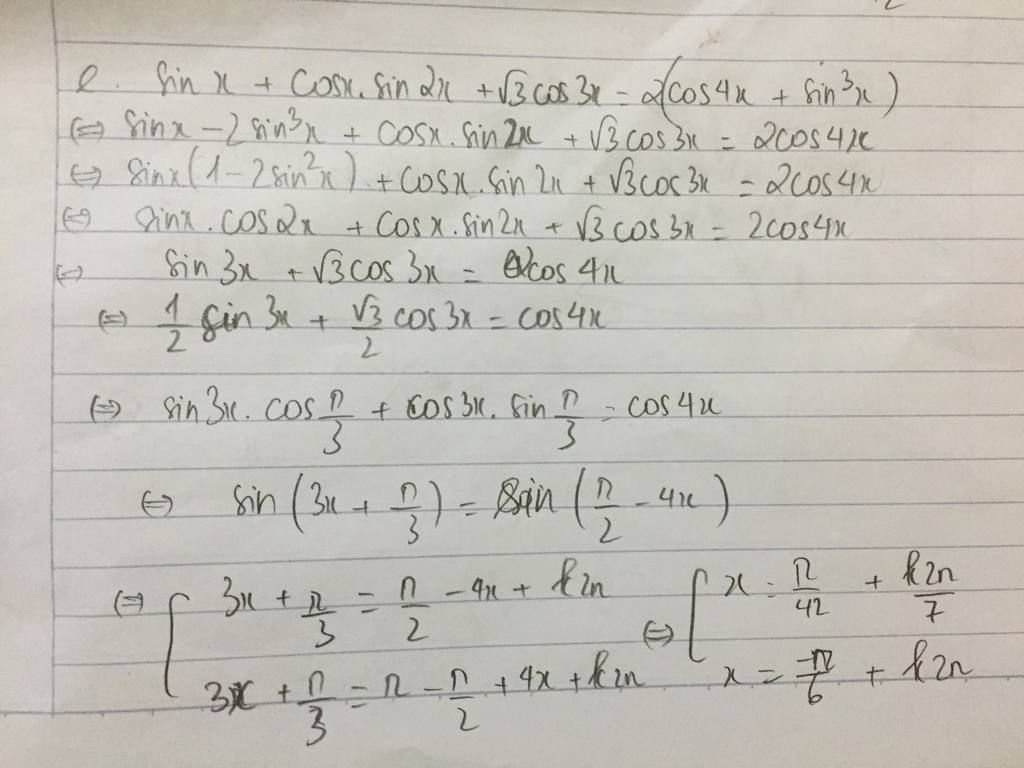 e. sin x + cosx.sin 2x + √3 cos 3x = 2(cos4x + sin³x)
⇔ sinx − 2sin³x + cosx.sin2x + √3 cos3x = 2cos4x
⇔ sinx(1 − 2sin²x) + cosx.sin2x + √3 cos3x = 2cos4x
⇔ sinx.cos2x + cosx.sin2x + √3 cos3x = 2cos4x
⇔ sin 3x + √3 cos 3x = 2cos 4x
⇔ 1/2 sin 3x + √3/2 cos3x = cos4x
⇔ sin3x.cos π/3 + cos3x.sin π/3 = cos4x
⇔ sin(3x + π/3) = sin(π/2 − 4x)
⇔ [ 3x + π/3 = π/2 − 4x + k2π ⇔ [ x = π/42 + k2π/7
3x + π/3 = π − π/2 + 4x + k2π x = −π/6 + k2π